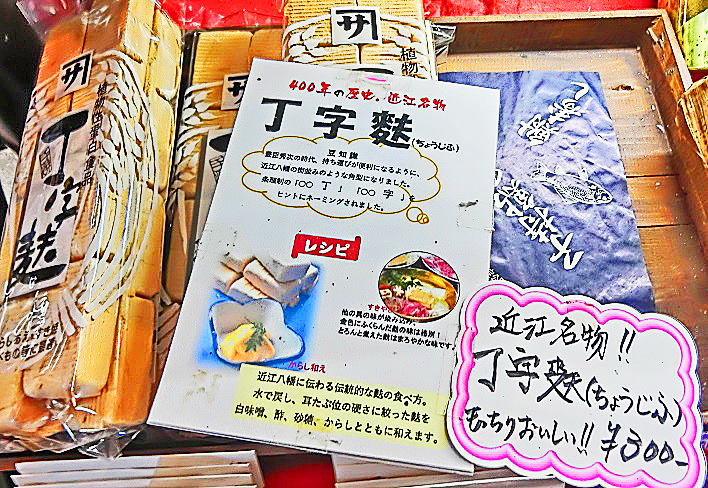 サ
植物性蛋白食品
丁字麩
サ
植物
400年の歴史・近江名物
丁字麩(ちょうじふ)
豆知識
豊臣秀次の時代、持ち運びが便利になるように、
近江八幡の街並みのような角型になりました。
条理制の「○○ 丁」「○○ 字」を
ヒントにネーミングされました。
レシピ
すきやき
他の具の味が染み込み、
金色にふくらんだ麩の味は格別!
とろんと煮えた麩はまろやかな味です。
からし和え
近江八幡に伝わる伝統的な麩の食べ方。
水で戻し、耳たぶ位の硬さに絞った麩を
白味噌、酢、砂糖、からしとともに和えます。
近江名物!!
丁字麩(ちょうじふ)
もちりおいしい!! ¥300-